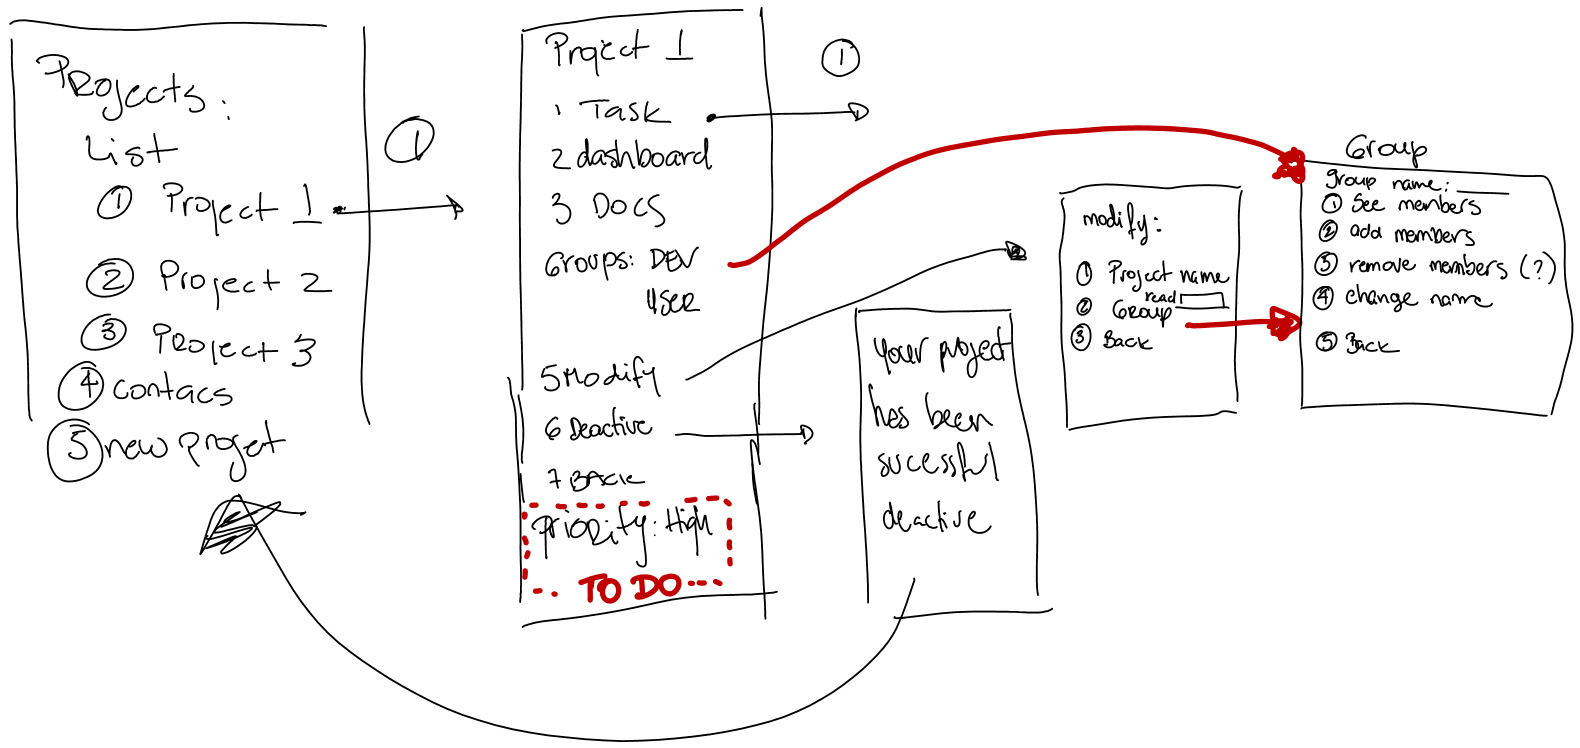 PROjects:
List
① Project 1
② Project 2
③ Project 3
④ contacs
⑤ new projet
①
Project 1
1 Task
2 dashboard
3 Docs
Groups: DEV
USER
5 Modify
6 Deactive
7 BACK
PRIORity: High
TO DO
①
your project
hes been
sucessful
deactive
modify:
① Project name
read
② Group
③ Back
Group
group name:
① See members
② add members
③ remove members (?)
④ change name
⑤ Back